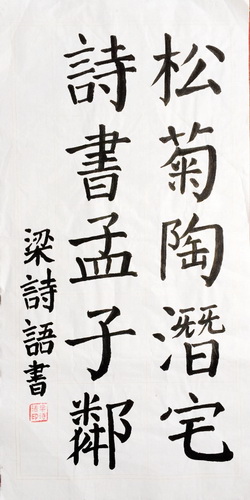 松菊陶潛宅
詩書孟子鄰
梁詩語書